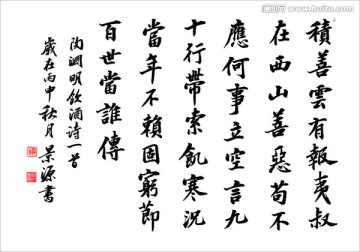 積善雲有報夷叔
在西山善惡苟不
應何事立空言九
十行帶索飢寒況
當年不賴固窮節
百世當誰傳
陶淵明飲酒詩一首
歲在丙申秋月景源書